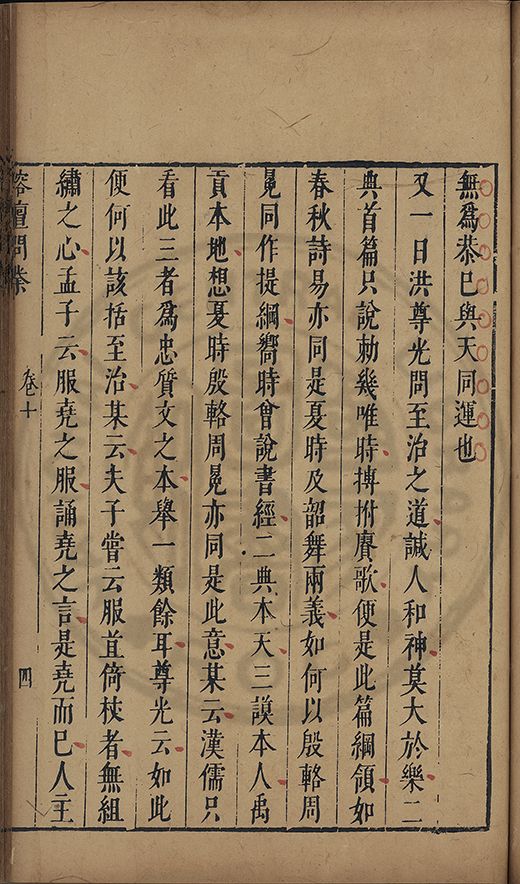 無爲恭巳與天同運也
又一日洪尊光問至治之道諴人和神莫大於樂二
典首篇只說勅幾唯時摶拊賡歌便是此篇綱領如
春秋詩易亦同是夏時及韶舞兩義如何以殷輅周
冕同作提綱嚮時會說書經二典本天三謨本人禹
貢本地想夏時殷輅周冕亦同是此意某云漢儒只
看此三者爲忠質文之本舉一類餘耳尊光云如此
便何以該括至治某云夫子嘗云服苴倚杖者無組
繡之心孟子云服堯之服誦堯之言是堯而巳人主
榕壇問業 卷十 四